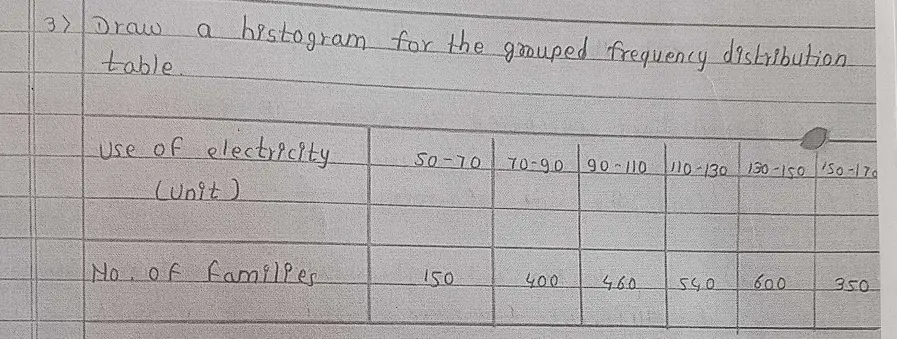 3) Draw a histogram for the grouped frequency distribution
table.
Use of electricity 50-70 70-90 90-110 110-130 130-150 150-170
(Unit)
No. of families 150 400 460 540 600 350